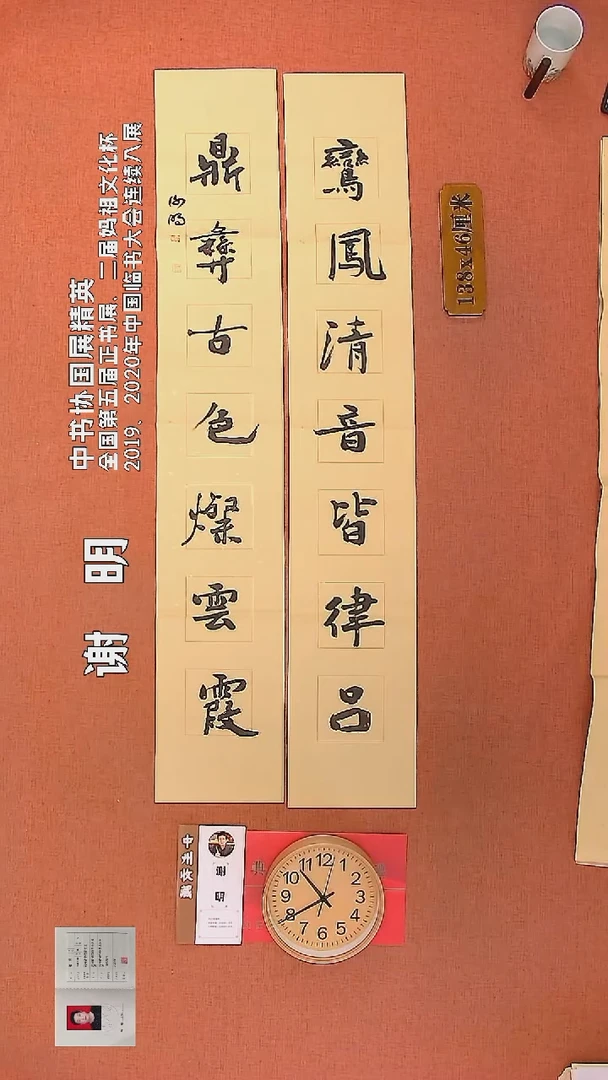 鸞鳳清音皆律呂
鼎彝古色燦雲霞
谢明
138x46厘米
中书协国展精英
全国第五届正书展、二届妈祖文化杯
2019、2020年中国临书大会连续入展
谢 明
谢
明
典
12
1
2
3
4
5
6
7
8
9
10
11